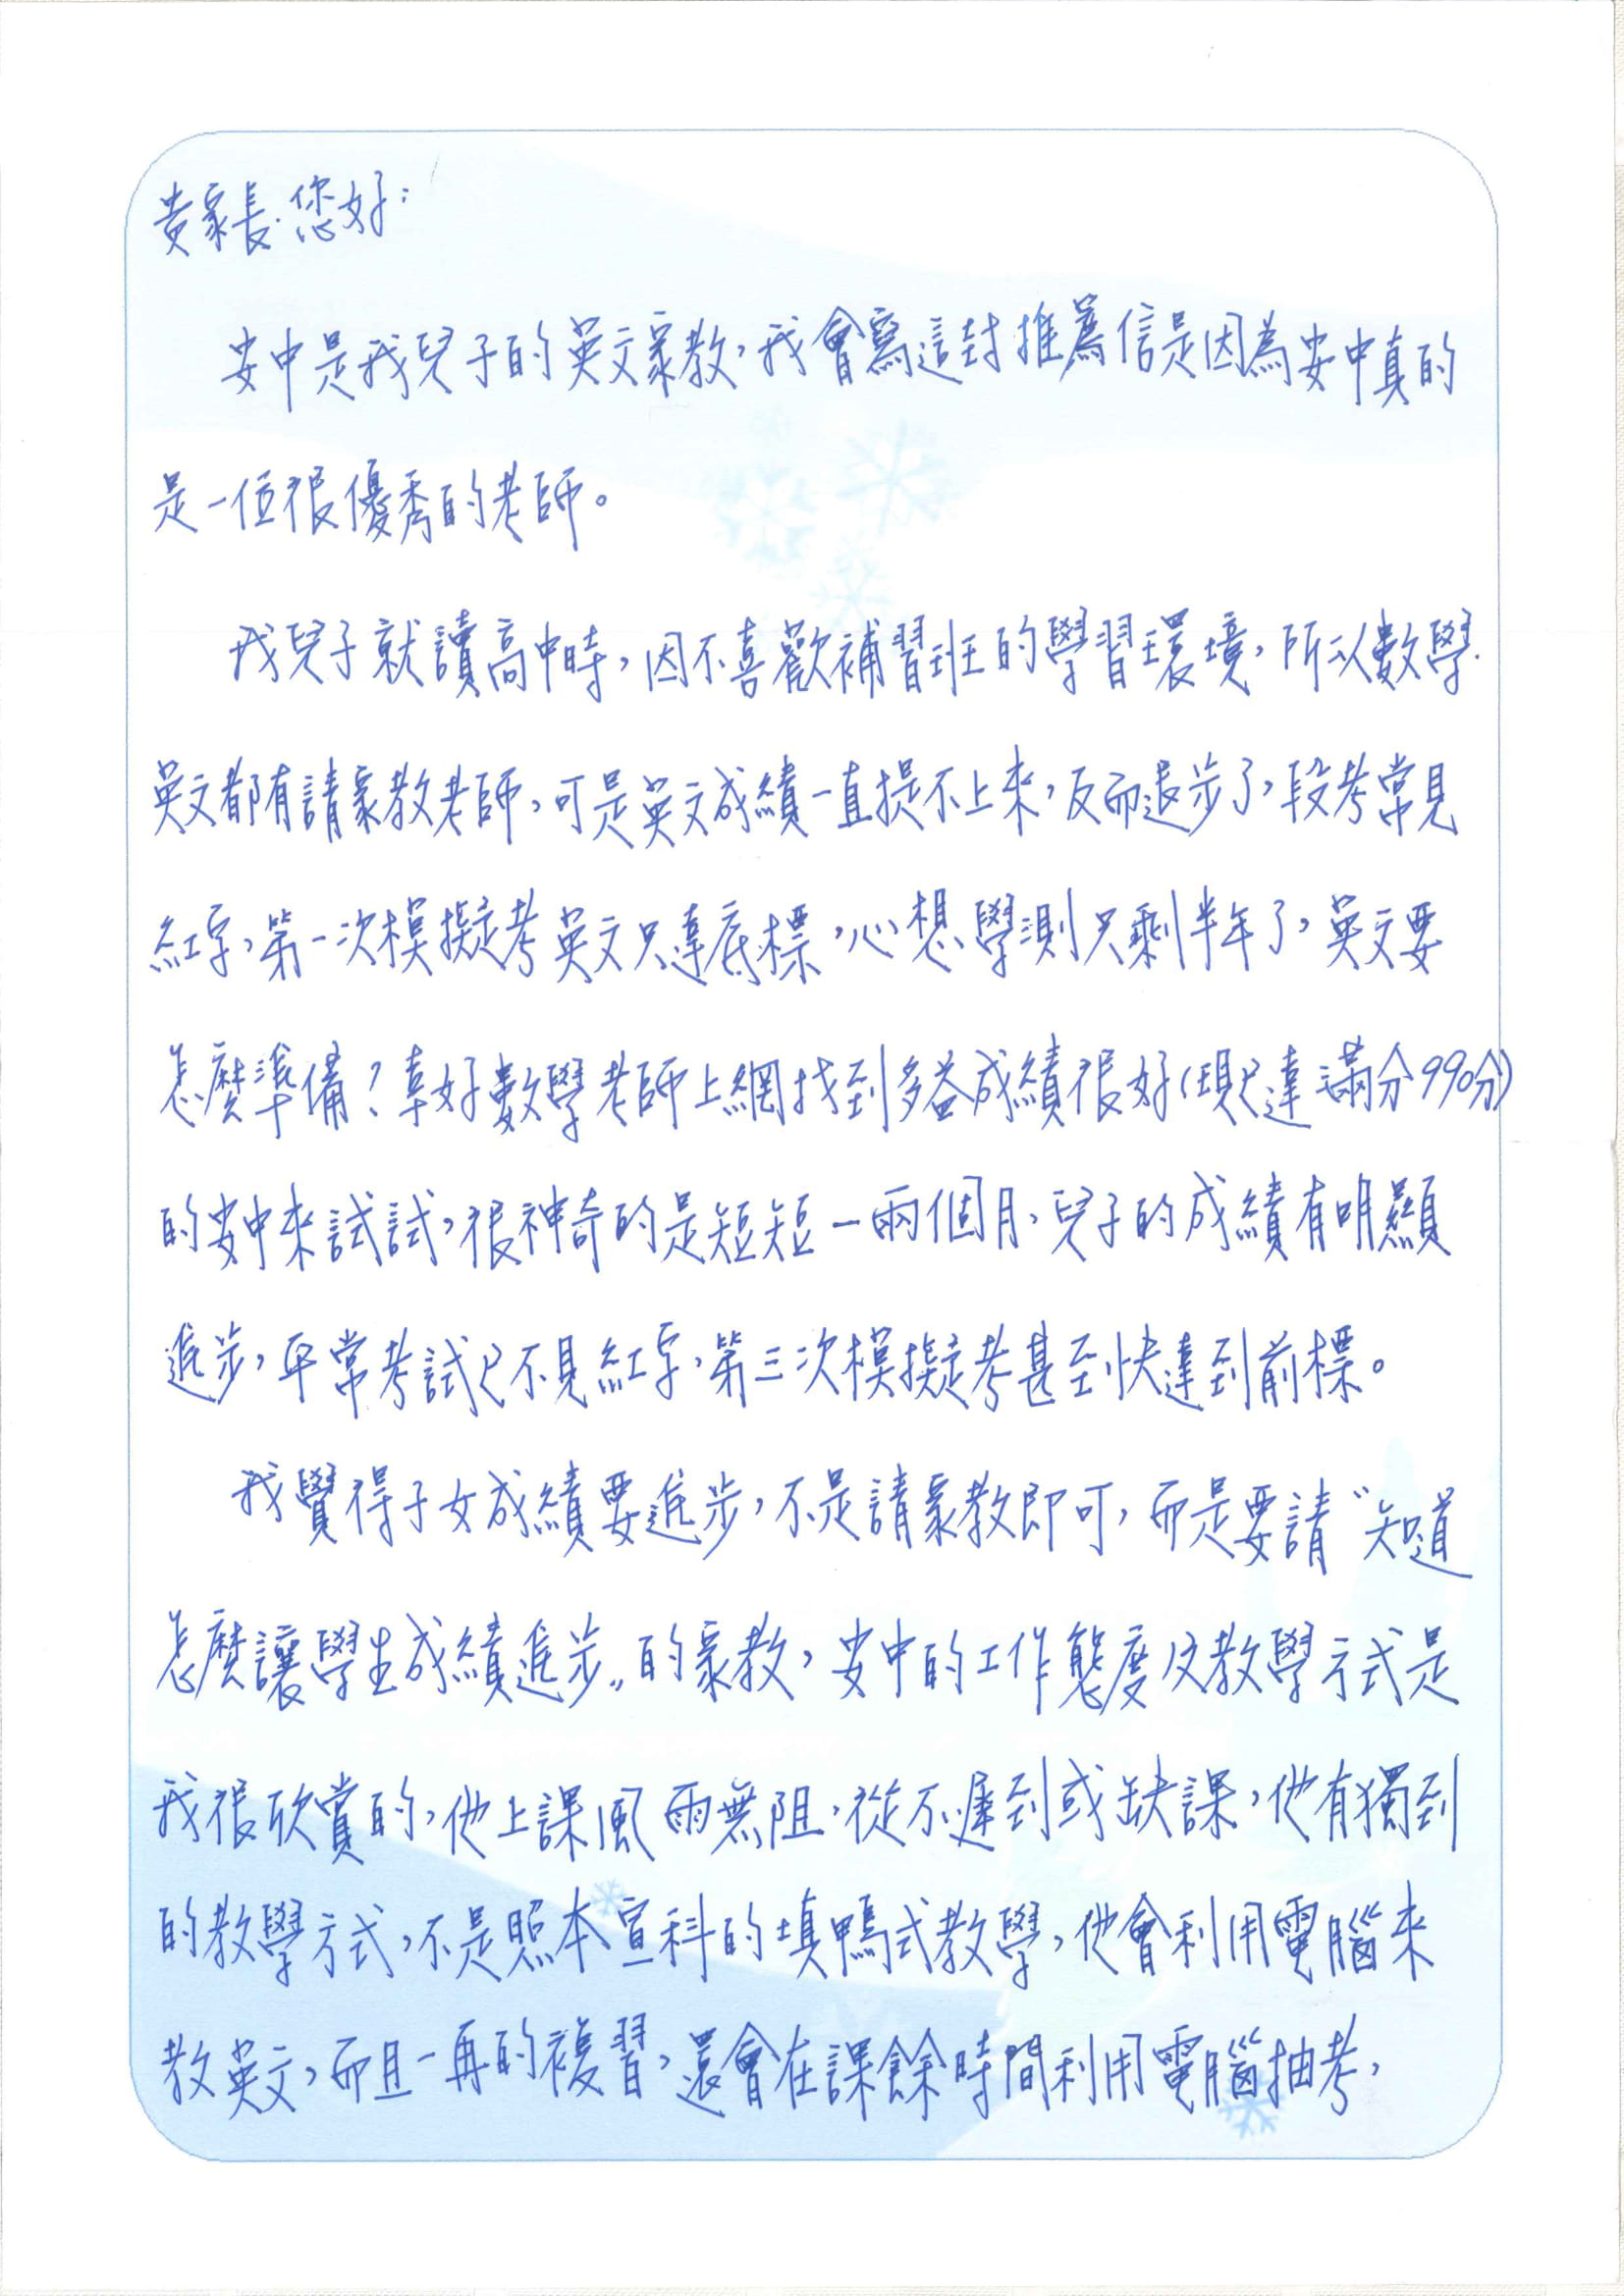 貴家長.您好:
安中是我兒子的英文家教,我會寫這封推薦信是因為安中真的
是一位很優秀的老師。
我兒子就讀高中時,因不喜歡補習班的學習環境,所以數學.
英文都有請家教老師,可是英文成績一直提不上來,反而退步了,段考常見
紅字,第一次模擬考英文只達底標,心想學測只剩半年了,英文要
怎麼準備?幸好數學老師上網找到多益成績很好(現已達滿分990分)
的安中來試試,很神奇的是短短一兩個月,兒子的成績有明顯
進步,平常考試已不見紅字,第三次模擬考甚至快達到前標。
我覺得子女成績要進步,不是請家教即可,而是要請〝知道
怎麼讓學生成績進步〞的家教,安中的工作態度及教學方式是
我很欣賞的,他上課風雨無阻,從不遲到或缺課,他有獨到
的教學方式,不是照本宣科的填鴨式教學,他會利用電腦來
教英文,而且一再的複習,還會在課餘時間利用電腦抽考,